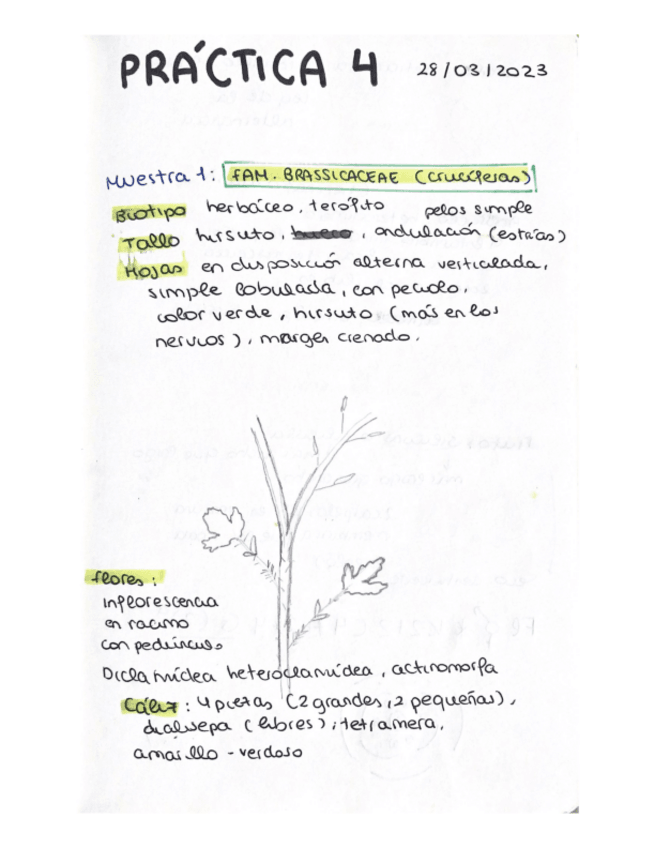 PRÁCTICA 4 28/03/2023
Muestra 1: FAM. BRASSICACEAE (Crucíferas)
Biotipo herbáceo, terófito pelos simple
Tallo hirsuto, hueco, ondulación (estrías)
Hojas en disposición alterna verticulada,
simple lobulada, con peciolo.
color verde, hirsuto (más en los
nervios), margen crenado.
flores:
inflorescencia
en racimo
con pedúnculo
Diclamídea heteroclamídea, actinomorfa
Cáliz: 4 piezas (2 grandes, 2 pequeñas),
dialisepa (libres); tetramera,
amarillo - verdoso